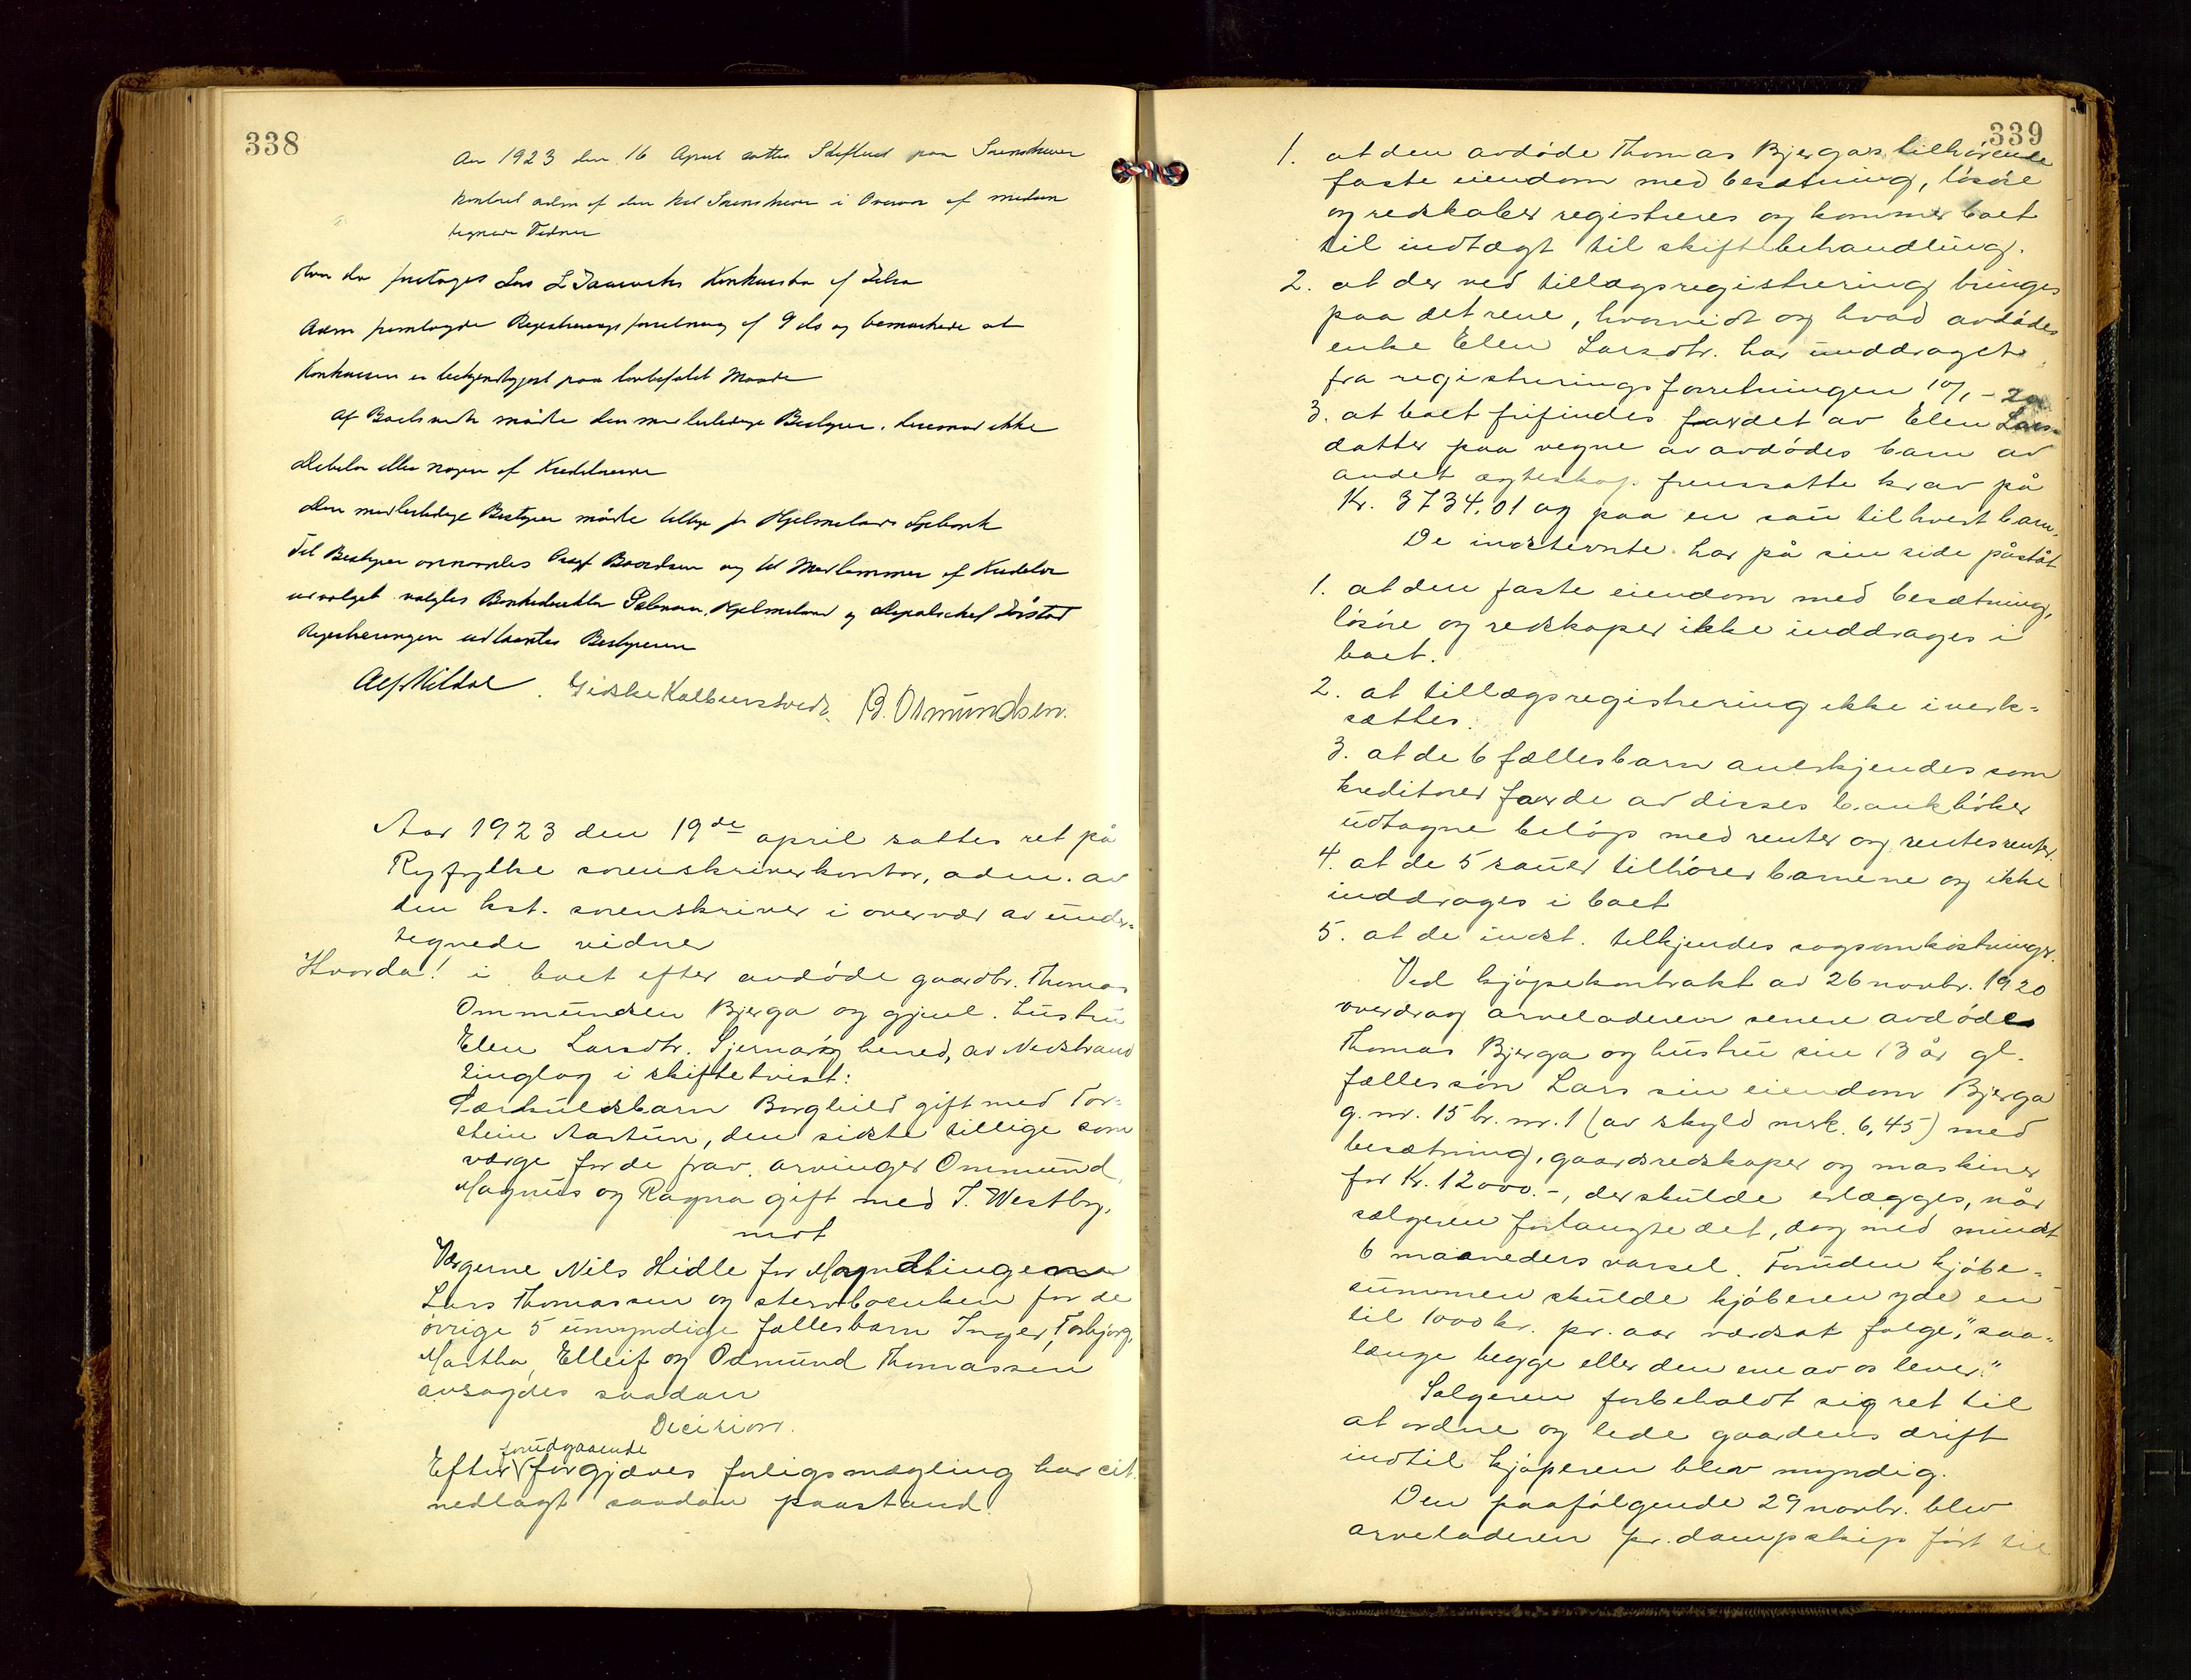 338
Aar 1923 den 16 April sattes Skifteret paa Sorenskriver
kontoret adm af den kst Sorenskriver i Overvær af under
tegnede Vidner
Hvor da foretoges Lars L Konkursbo af
Adm fremlagde Registreringsforretning af 9 ds og bemærkede at
Konkursen er bekjendtgjort paa lovbefalet Maade
Af Boets mødte den midlertidige Bestyrer, derimod ikke
Debitor eller nogen af Kreditorerne
Den midlertidige Bestyrer mødte tillige for Hjelmelands Sparebank
Til Bestyrer opnævntes Baardsen og til Medlemmer af Kreditor
udvalget valgtes Hjelmeland og
Registreringen udlaantes Bestyreren
Alf Kildal. Giske Kolbeinstveit. B. Osmundsen.
Aar 1923 den 19de april sattes ret på
Ryfylke sorenskriverkontor, adm. av
den kst. sorenskriver i overvær av under-
tegnede vidner
Hvorda! i boet efter avdøde gaardbr. Thomas
Ommundsen Bjerga og gjenl. hustru
Elen Larsdtr. Sjernarøy herred, av Nedstrand
tinglag i skiftetvist:
Særkuldsbarn Borghild gift med Tor-
stein Aartun, den sidste tillige som
værge for de frav. arvinger Ommund,
Magnus og Ragna gift med T. Westby,
mot
Værgerne Nils Hidle for Myndtlingen
Lars Thomassen og stervboenken for de
øvrige 5 umyndige fællesbarn Inger, Torbjørg,
Martha, Elleif og Odmund Thomassen
avsagdes saadan
Decision.
forudgaaende
Efter forgjæves forligsmægling har cit.
nedlagt saadan paastand:
339
1. at den avdøde Thomas Bjergas tilhørende
faste eiendom med besætning, løsøre
og redskaber registreres og kommer boet
til indtægt til skiftebehandling.
2. at der ved tillægsregistrering bringes
paa det rene, hvorvidt og hvad avdødes
enke Elen Larsdtr. har unddraget
fra registreringsforretningen 10/1 - 20
3. at boet frifindes for det av Elen Lars-
datter paa vegne av avdødes barn av
andet egteskap fremsatte krav på
Kr. 3734,01 og paa en sau til hvert barn.
De indstevnte har på sin side påståt
1. at den faste eiendom med besætning,
løsøre og redskaper ikke inddrages i
boet.
2. at tillægsregistrering ikke iverk-
sættes.
3. at de 6 fællesbarn anerkjendes som
kreditorer for de av disses bankbøker
udtagne beløp med renter og rentesrenter.
4. at de 5 sauer tilhører barnene og ikke
inddrages i boet
5. at de indst. tilkjendes sagsomkostninger.
Ved kjøpekontrakt av 26 novbr. 1920
overdrog arveladeren senere avdøde
Thomas Bjerga og hustru sin 13 år gl.
fællessøn Lars sin eiendom Bjerga
g. nr. 15 br. nr. 1 (av skyld mrk. 6,45) med
besætning, gaardsredskaper og maskiner
for Kr. 12000.-, der skulde erlægges, når
sælgeren forlangte det, dog med mindst
6 maaneders varsel. Foruden kjøbe-
summen skulde kjøberen yde en
til 1000 kr. pr. aar værdsat følge, "saa-
længe begge eller den ene av os lever."
Sælgeren forbeholdt sig ret til
at ordne og lede gaardens drift
indtil kjøperen blev myndig.
Den paafølgende 29 novbr. blev
arveladeren pr. dampskip ført til